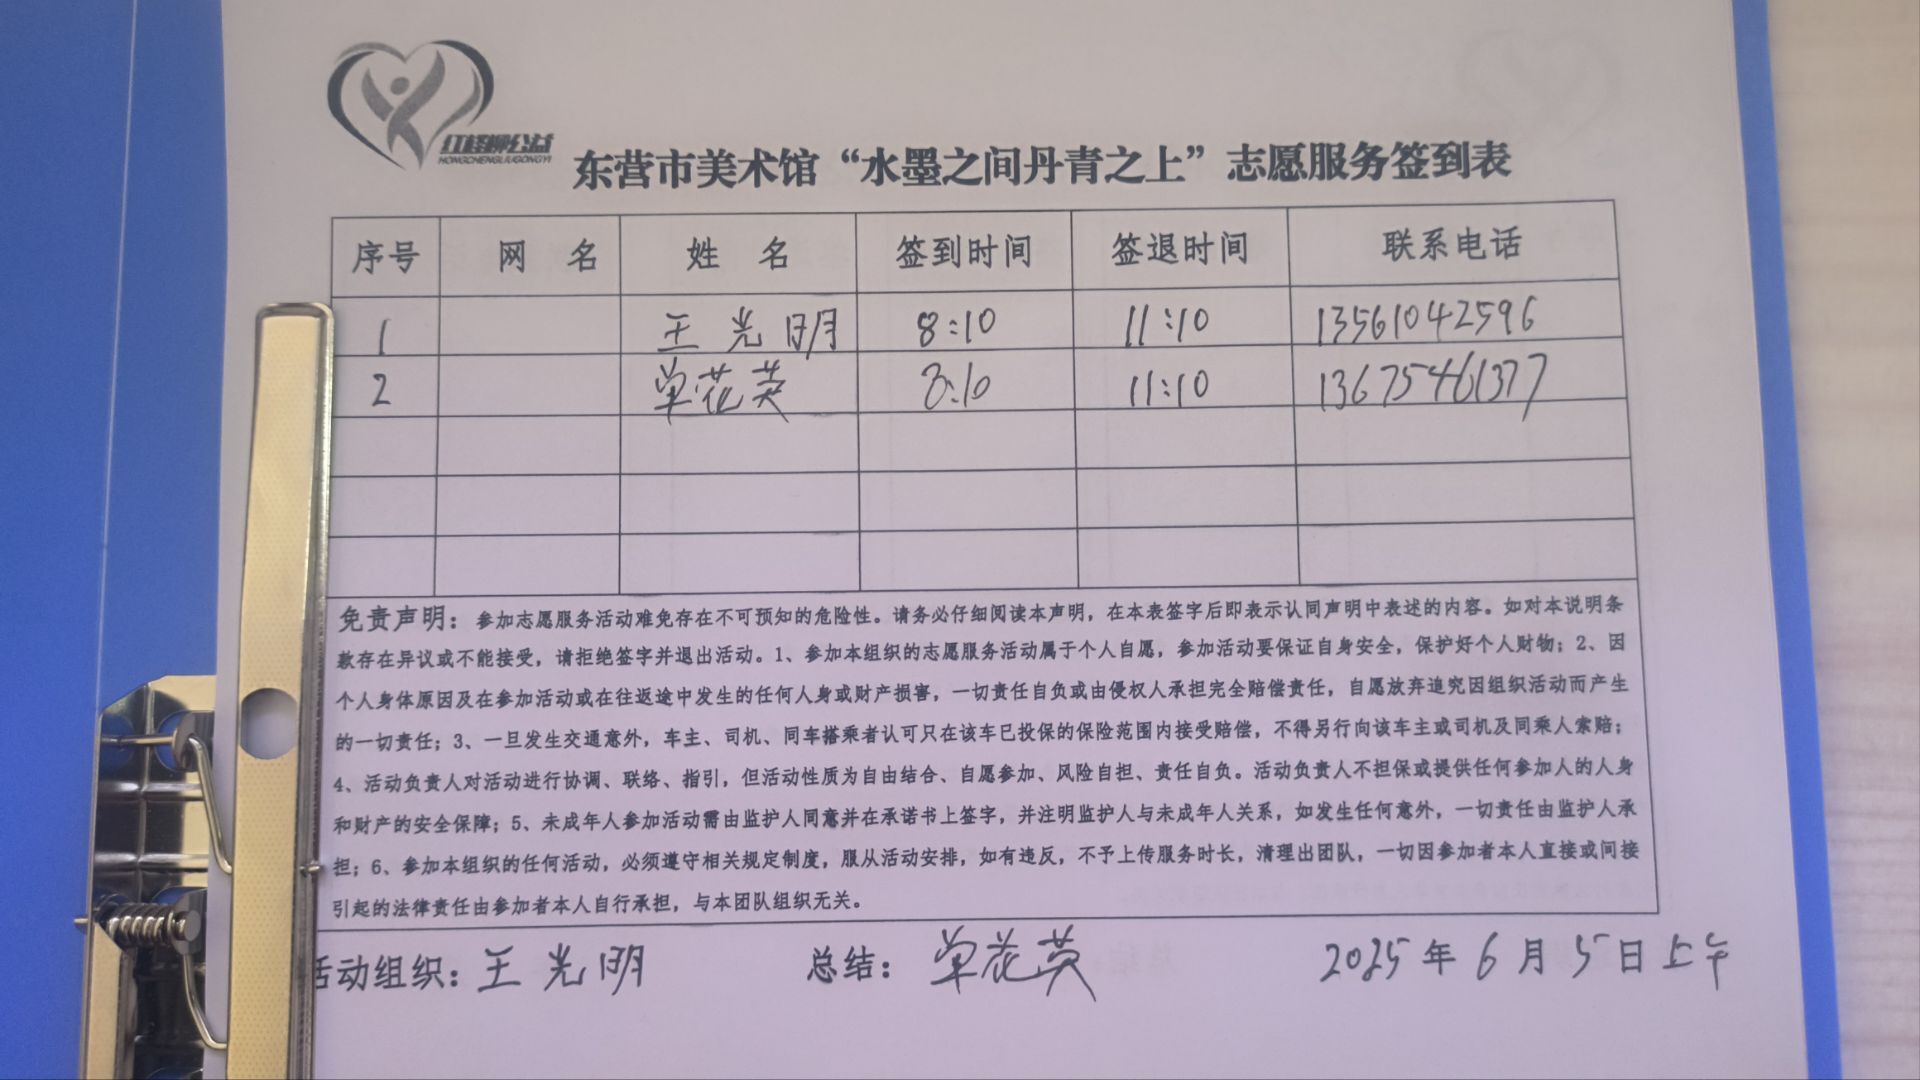 红柽柳公益
HONGCHENGLIUGONGYI
东营市美术馆“水墨之间丹青之上”志愿服务签到表
序号 网 名 姓 名 签到时间 签退时间 联系电话
1 王光明 8:10 11:10 13561042596
2 单花英 8:10 11:10 13675461377
免责声明：参加志愿服务活动难免存在不可预知的危险性。请务必仔细阅读本声明，在本表签字后即表示认同声明中表述的内容。如对本说明条
款存在异议或不能接受，请拒绝签字并退出活动。1、参加本组织的志愿服务活动属于个人自愿，参加活动要保证自身安全，保护好个人财物；2、因
个人身体原因及在参加活动或在往返途中发生的任何人身或财产损害，一切责任自负或由侵权人承担完全赔偿责任，自愿放弃追究因组织活动而产生
的一切责任；3、一旦发生交通意外，车主、司机、同车搭乘者认可只在该车已投保的保险范围内接受赔偿，不得另行向该车主或司机及同乘人索赔；
4、活动负责人对活动进行协调、联络、指引，但活动性质为自由结合、自愿参加、风险自担、责任自负。活动负责人不担保或提供任何参加人的人身
和财产的安全保障；5、未成年人参加活动需由监护人同意并在承诺书上签字，并注明监护人与未成年人关系，如发生任何意外，一切责任由监护人承
担；6、参加本组织的任何活动，必须遵守相关规定制度，服从活动安排，如有违反，不予上传服务时长，清理出团队，一切因参加者本人直接或间接
引起的法律责任由参加者本人自行承担，与本团队组织无关。
活动组织：王光明 总结：单花英 2025年6月5日上午